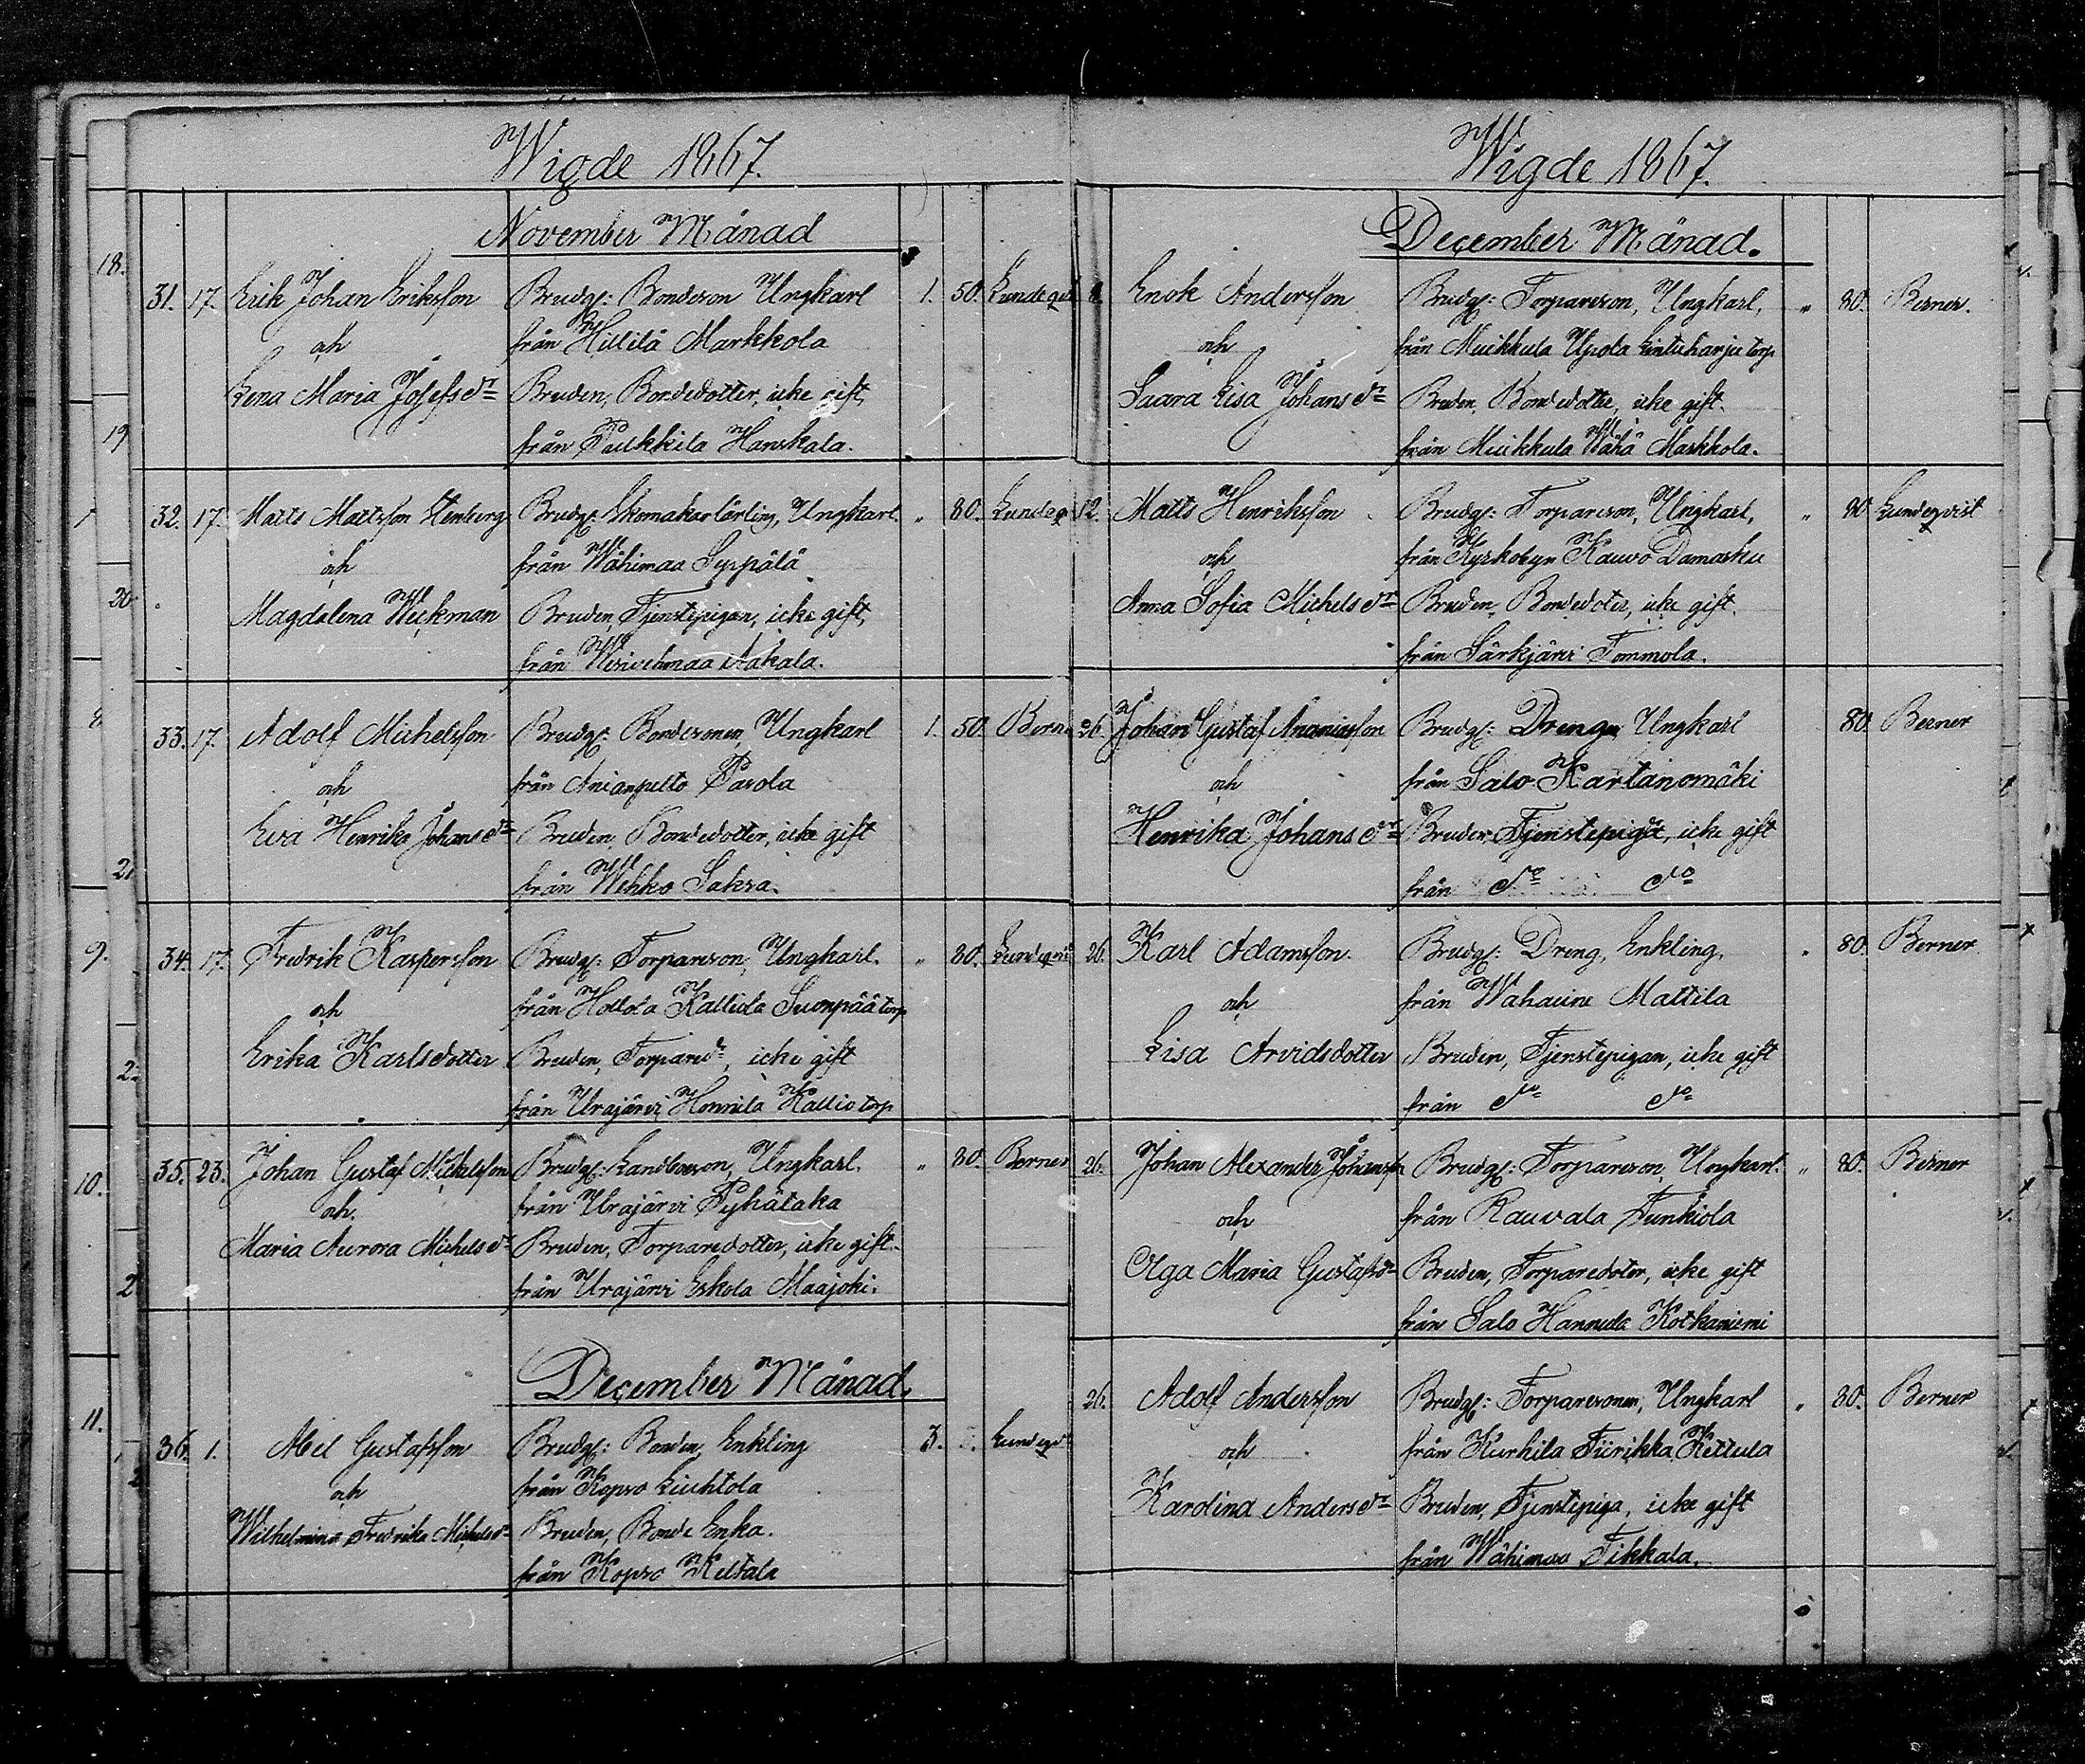 Wigde 1867.
November Månad
31. 17. Erik Johan Eriksson Brudg: Bondeson Ungkarl 1. 50. Lundeqvi
och från Hillilä Markkola
Lena Maria Josefsdr Bruden, Bondedotter, icke gift,
från Pulkkila Hanskala.
32. 17. Matts Mattsson Stenberg Brudg: Skomakarlärling, Ungkarl. " 80. Lundeq
och från Wähimaa Syppälä
Magdalena Weckman Bruden, Tjenstepigan, icke gift,
från Wesivehmaa Aakala.
33. 17. Adolf Michelsson Brudg: Bondesonen, Ungkarl 1. 50. Berne
och från Anianpelto Pasola
Eva Henrika Johansdr Bruden, Bondedotter, icke gift
från Wehko Saksa.
34. 17. Fredrik Kaspersson Brudg: Torpareson, Ungkarl. " 80. Lundeqvi
och från Hollola Kalliola Suonpää torp
Erika Karlsdotter Bruden, Torpared:, icke gift
från Urajärvi Honnila Kallio torp
35. 23. Johan Gustaf Michelsson Brudg: Landboeson, Ungkarl. " 80. Berner
och. från Urajärvi Pyhätaka
Maria Aurora Michelsdr Bruden, Torparedotter, icke gift.
från Urajärvi Eskola Maajoki.
December Månad.
36. 1. Abel Gustafsson Brudg: Bonden, Enkling 3. Lundeqv
och från Kopso Liuhtola
Wilhelmina Fredrika Michelsdr Bruden, Bonde Enka.
från Kopso Keltala
Wigde 1867.
December Månad.
Enok Andersson Brudg: Torpareson, Ungkarl, " 80. Berner.
och från Muikkula Upola Lintuharju torp
Saara Lisa Johansdr Bruden, Bondedotter, icke gift.
från Muikkula Wähä Markkola.
12. Matts Henriksson Brudg: Torpareson, Ungkarl, " 80 Lundeqvist
och från Kyrkobyn Kauvo Damasku
Anna Sofia Michelsdr Bruden, Bondedoter, icke gift.
från Särkjärvi Tommola.
26. Johan Gustaf Ananiasson Brudg: Drengen, Ungkarl 80. Berner
och från Salo Kartanomäki
Henrika Johansdr Bruden Tjenstepiga, icke gift
från do do
26. Karl Adamsson. Brudg: Dreng, Enkling, " 80. Berner
och från Wahaine Mattila
Lisa Arvidsdotter Bruden, Tjenstepigan, icke gift
från do do
26. Johan Alexander Johansson Brudg: Torpareson, Ungkarl. " 80. Berner
och från Kauvala Funkiola
Olga Maria Gustafsdr Bruden, Torparedoter, icke gift
från Salo Hannula Kotkaniemi
26. Adolf Andersson Brudg: Torparesonen, Ungkarl " 80. Berner
och från Kurhila Tiirikka Kettula
Karolina Andersdr Bruden, Tjenstepiga, icke gift
från Wähimaa Tikkala.
18.
19
20
8
9.
10.
11.